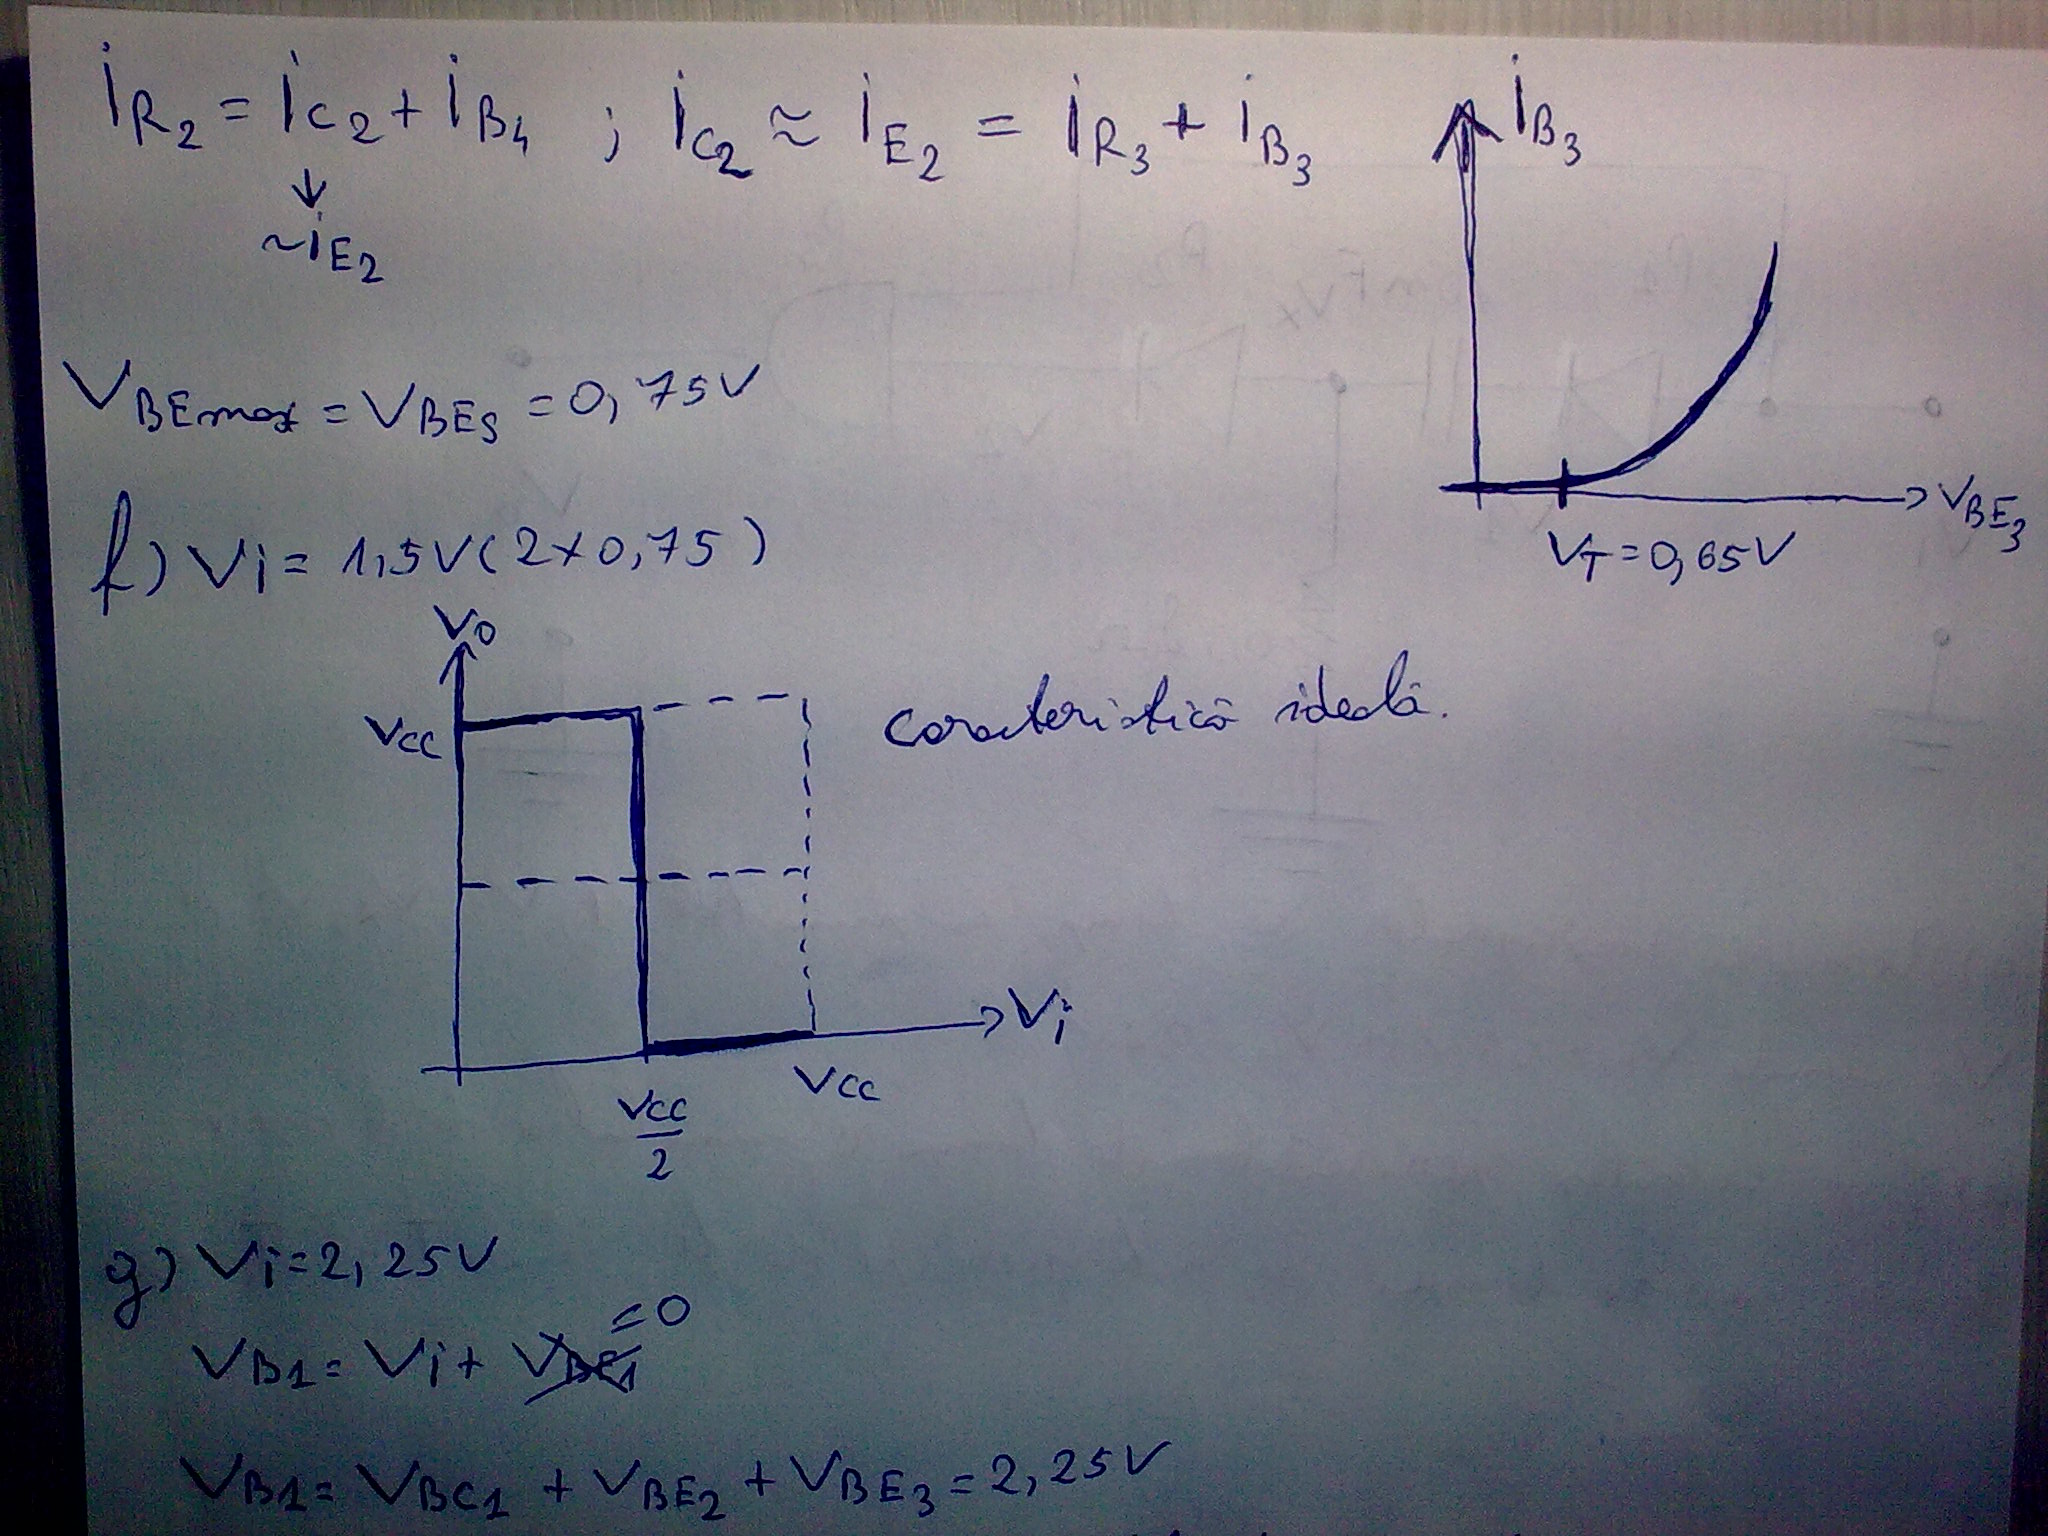 iR2 = iC2 + iB4 ; iC2 ≈ iE2 = iR3 + iB3
↓
~iE2
iB3
VBEmax = VBES = 0,75V
VBE3
VT = 0,65V
f) Vi = 1,5V (2x0,75)
VO
VCC
caracteristică ideală.
Vi
VCC
VCC/2
g) Vi = 2,25V
= 0
VB1 = Vi + VBE1
VB1 = VBC1 + VBE2 + VBE3 = 2,25V